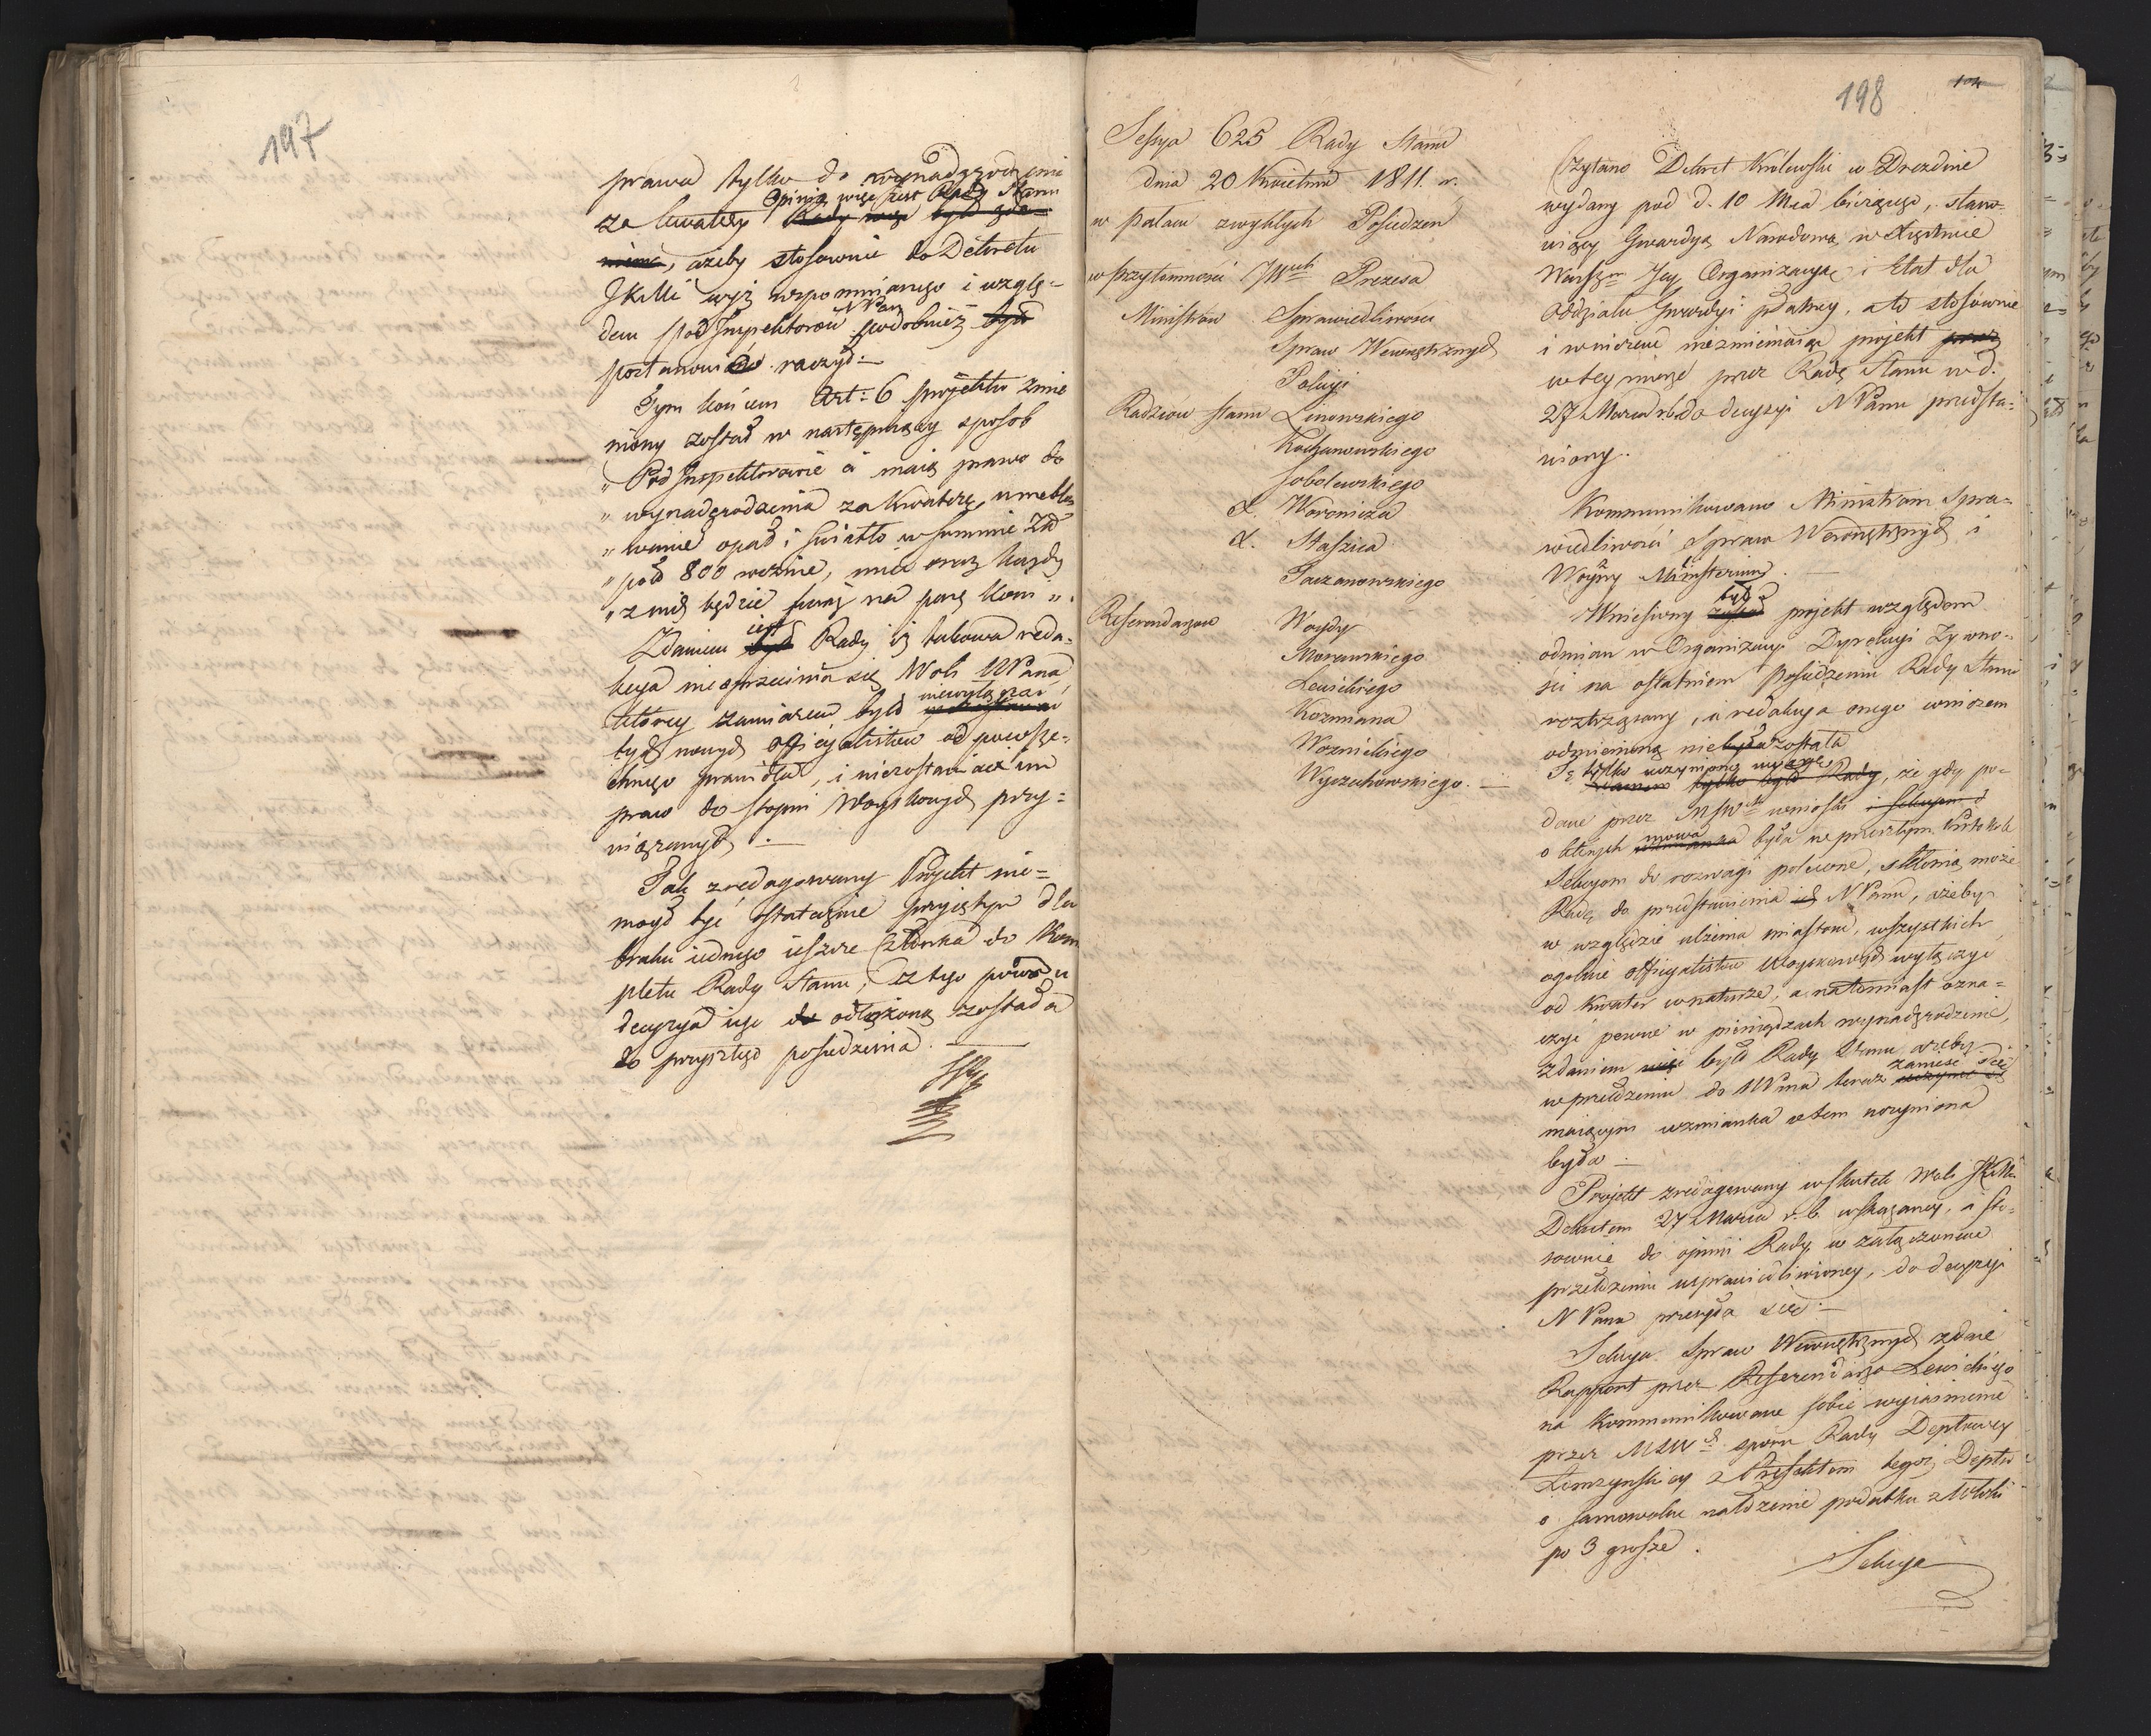 197
prawa tylko do wynadgrodzenia
Opinią więc jest Rady Stanu
za kwatery Rady więc było zda=
niem, ażeby stosownie do Dekretu
JKMci wyż wspomnianego i wzglę=
NPan
dem podInspektorów podobnież był
postanowić raczył.
Tym końcem Art: 6 projektu zmie
niony został w następujący sposób
"Pod Inspektorowie ci maią prawo do
"wynadgrodzenia za kwaterę, umeblo
"wanie opał i światło w summie Zło
"pol 800 rocznie, mieć oraz każdy
"z nich będzie furaż na parę koni".
iest
Zdaniem było Rady iż takowa reda=
kcya niesprzeciwia się Woli NPana
niewyłączać
którey zamiarem było
tych nowych officyalistow od powsze=
chnego prawidła, i niezostawiać im
praw do stopni Woyskowych przy=
wiązanych.
Tak zredagowany Projekt nie=
mogł być ostatecznie przyjętym dla
braku iednego ieszcze Członka do Kom
pletu Rady Stanu, z tego powodu
decyzya iego do odłożoną została
do przyszłego posiedzenia.
198
104
Sessya 625 Rady Stanu
dnia 20 Kwietnia 1811. r.
w Pałacu zwykłych Posiedzeń
w przytomności JW Prezesa
Ministrów Sprawiedliwości
Spraw Wewnętrznych
Policyi
Radzców stanu Linowskiego
Kochanowskiego
Sobolewskiego
X. Woronicza
X. Staszica
Taczanowskiego
Referendarzów Woydy
Morawskiego
Lewickiego
Kozmiana
Woznickiego
Wyczechowskiego.
Czytano Dekret Królewski w Dreznie
wydany pod d. 10 Mca bieżącego, stano=
wiący Gwardyą Narodową w Xięstwie
Warszm Jey Organizacyą i Etat dla
oddziału Gwardyi płatney, a to stosownie
i w niczem niezmieniaiąc projekt przez
w tey mierze przez Radę Stanu w d.
27 Marca rb do decyzyi NPanu przedsta=
wiony.
Kommunikowano Ministrom Spra=
wiedliwości Spraw Wewnętrznych i
Woyny Ministerium.
był
Wniesiony został projekt względem
odmian w Organizacyi Dyrekcyi Żywno=
ści na ostatniem Posiedzeniu Rady Stanu
roztrząsany, a redakcya onego w niczem
odmienioną nie była została
Tę tylko uczyniono uwagę
tylko było Rady, że gdy po=
dane przez MSW wnioski i Sekcyom d
mowa
o których wzmianka była w przeszłym Protokole
Sekcyom do rozwagi polecone, skłonią może
Radę do przedstawienia ich NPanu, ażeby
w względzie ulżenia miastom, wszystkich
ogolnie officyalistow Woyskowych wyłączyć
od kwater w naturze, a natomiast ozna=
czyć pewne w pieniądzach wynadgrodzenie,
zdaniem więc było Rady Stanu, ażeby
zanieść się
w przełożeniu do NPana teraz
maiącym wzmianka o tem uczyniona
była.
Projekt zredagowany w skutek Woli JKMci
Dekretem 27 Marca r. b. wskazaney, a sto=
sownie do opinii Rady w załączonem
przełożeniu usprawiedliwioney, do decyzyi
NPana przesyła się.
Sekcya Spraw Wewnętrznych zdaie
Rapport przez Referendarza Lewickiego
na kommunikowane sobie wyiaśnienie
przez MSW sporu Rady Deptowey
Łomzyńskiey z Prefektem tegoż Deptu
o samowolne nałożenie podatku z Włoki
po 3 grosze.
Sekcya